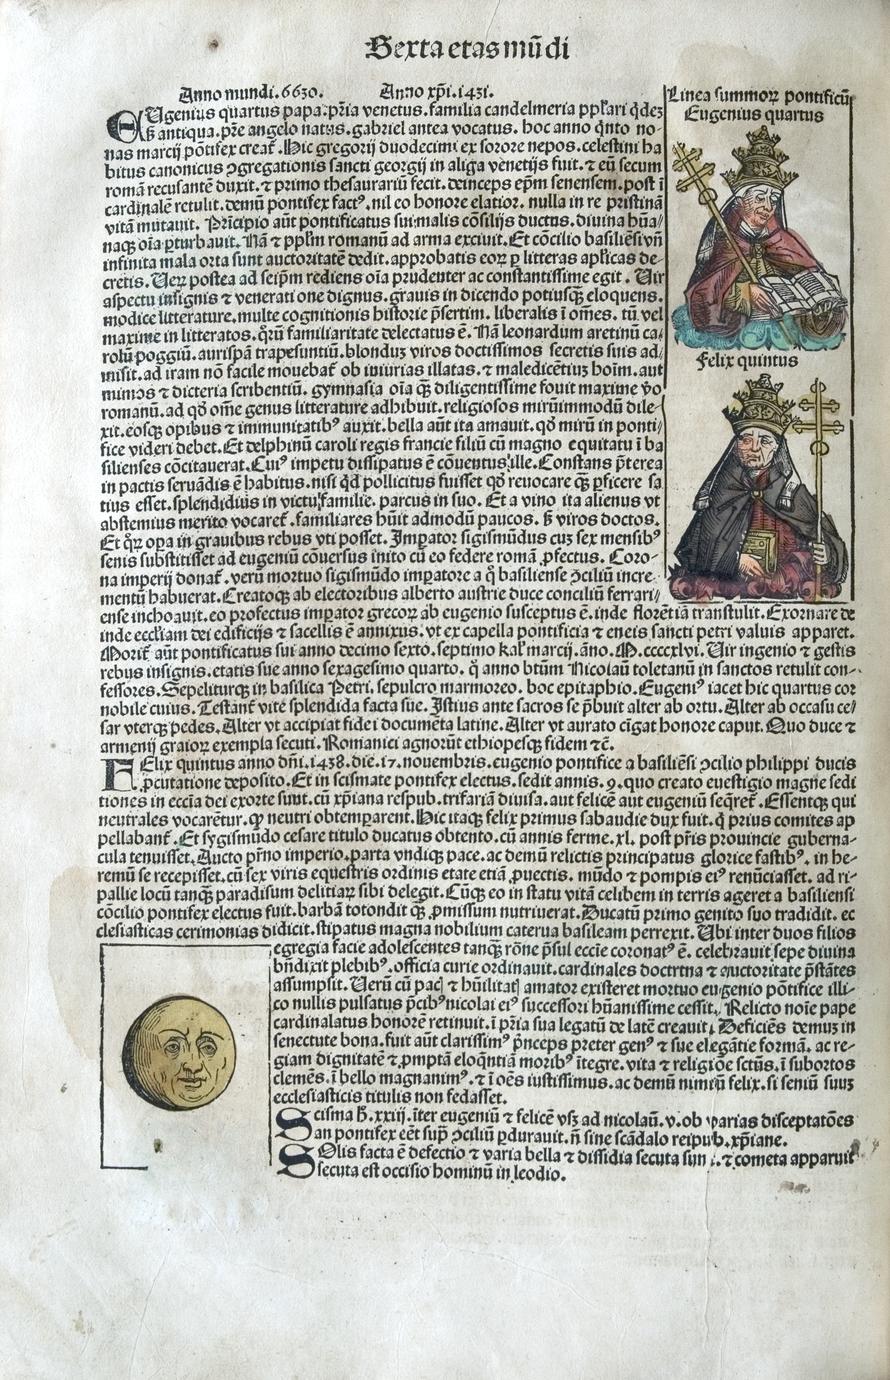 Sexta etas mūdi
Anno mundi.6630. Anno xp̄i.1431.
Linea summoꝝ pontificū
Eugenius quartus
EUgenius quartus papa.pr̄ia venetus.familia candelmeria pp̄lari qdeꝫ
s̄ antiqua.pr̄e angelo natus.gabriel antea vocatus. hoc anno q̄nto no-
nas marcij pōtifex creat̄. Hic gregorij duodecimi ex sorore nepos.celestini ha
bitus canonicus ↄgregationis sancti georgij in aliga venetijs fuit.⁊ eū secum
romā recusantē duxit.⁊ primo thesaurariū fecit.deinceps ep̄m senensem.post ī
cardinalē retulit.demū pontifex factꝰ.nil eo honore elatior. nulla in re pristinā
vitā mutauit. Prīcipio aūt pontificatus sui malis cōsilijs ductus.diuina hūa/
naqꝫ oīa ꝑturbauit.Nā ⁊ pp̄lm romanū ad arma exciuit.Et cōcilio basiliēsi vn̄
infinita mala orta sunt auctoritatē dedit.approbatis eoꝝ ꝑ litteras ap̄licas de-
cretis.Ueꝝ postea ad seip̄m rediens oīa prudenter ac constantissime egit . Uir
aspectu insignis ⁊ veneratione dignus.grauis in dicendo potiusqꝫ eloquens.
modice litterature.multe cognitionis historie p̄sertim. liberalis ī om̄es. tū vel
maxime in litteratos.qꝝū familiaritate delectatus ē. Nā leonardum aretinū ca/
rolū poggiū.aurispā trapesuntiū.blonduꝫ viros doctissimos secretis suis ad/
misit.ad iram nō facile mouebat̄ ob iniurias illatas.⁊ maledicētiuꝫ hoīm.aut
mimos ⁊ dicteria scribentiū. gymnasia oīa qꝫ diligentissime fouit maxime v̄o
romanū.ad qd̄ om̄e genus litterature adhibuit.religiosos mirūimmodū dile-
xit.eosqꝫ opibus ⁊ immunitatibꝰ auxit.bella aūt ita amauit. qd̄ mirū in ponti/
fice videri debet.Et delphinū caroli regis francie filiū cū magno equitatu ī ba
silienses cōcitauerat.Cuiꝰ impetu dissipatus ē cōuentus ille. Constans p̄terea
in pactis seruādis ē habitus.nisi qd pollicitus fuisset qd̄ reuocare qꝫ ꝑficere sa
tius esset.splendidius in victu familie. parcus in suo. Et a vino ita alienus vt
abstemius merito vocaret̄ .familiares hūit admodū paucos. s̄ viros doctos.
Et qꝝ oꝑa in grauibus rebus vti posset. Imꝑator sigismūdus cuꝫ sex mensibꝰ
senis substitisset ad eugeniū cōuersus inito cū eo federe romā ꝓfectus. Coro-
na imperij donat̄. verū mortuo sigismūdo imꝑatore a q̄ basiliense ↄciliū incre.
mentū habuerat.Creatoqꝫ ab electoribus alberto austrie duce conciliū ferrari/
Felix quintus
ense inchoauit.eo profectus imꝑator grecoꝝ ab eugenio susceptus ē. inde florētiā transtulit.Exornare de
inde eccl̄iam dei edificijs ⁊ sacellis ē annixus.vt ex capella pontificia ⁊ eneis sancti petri valuis apparet.
Morit̄ aūt pontificatus sui anno decimo sexto.septimo kal̄ marcij.āno.M.ccccxlvi. Uir ingenio ⁊ gestis
rebus insignis.etatis sue anno sexagesimo quarto. q̄ anno btm̄ Nicolaū toletanū in sanctos retulit con-
fessores.Sepeliturqꝫ in basilica Petri. sepulcro marmoreo. hoc epitaphio.Eugeniꝰ iacet hic quartus cor
nobile cuius. Testant̄ vite splendida facta sūe. Istius ante sacros se p̄buit alter ab ortu. Alter ab occasu ce/
sar vterqꝫ pedes. Alter vt accipiat fidei documēta latine. Alter vt aurato cīgat honore caput. Quo duce ⁊
armenij graioꝝ exempla secuti. Romaniei agnorūt ethiopesqꝫ fidem ⁊c̄.
FElix quintus anno dn̄i.1438.die.17.nouembris.eugenio pontifice a basiliēsi ↄcilio philippi ducis
ꝓcutatione deposito.Et in scismate pontifex electus.sedit annis.9.quo creato euestigio magne sedi
tiones in eccīa dei exorte sunt.cū xp̄iana respub.trifariā diuisa.aut felicē aut eugeniū seqret̄ .Essentqꝫ qui
neutrales vocarētur.qꝙ neutri obtemꝑarent.Hic itaqꝫ felix primus sabaudie dux fuit.q̄ prius comites ap
pellabant̄. Et sygismūdo cesare titulo ducatus obtento.cū annis ferme.xl. post pr̄is prouincie guberna-
cula tenuisset.Aucto pr̄no imperio.parta vndiqꝫ pace.ac demū relictis principatus glorice fastibꝰ. in he-
remū se recepisset.cū sex viris equestris ordinis etate etiā ꝓuectis. mūdo ⁊ pompis eiꝰ renūciasset. ad ri-
pallie locū tanqꝫ paradisum delitiaꝝ sibi delegit.Cūqꝫ eo in statu vitā celibem in terris ageret a basiliensi
cōcilio pontifex electus fuit.barbā totondit qꝫ ꝓmissum nutriuerat.Ducatū primo genito suo tradidit. ec
clesiasticas cerimonias didicit.stipatus magna nobilium caterua basileam perrexit. Ubi inter duos filios
egregia facie adolescentes tanqꝫ rōne p̄sul eccīe coronatꝰ ē. celebrauit sepe diuina
bn̄dixit plebibꝰ.officia curie ordinauit.cardinales doctrina ⁊ auctoritate p̄stātes
assumpsit.Uerū cū pacis ⁊ hūilitatis amator existeret mortuo eugenio pōtifice illi-
co nullis pulsatus p̄cibꝰ nicolai eiꝰ successori hūanissime cessit. Relicto noīe pape
cardinalatus honorē retinuit. ī pr̄ia sua legatū de latē creauit. Deficiēs demuꝫ in
senectute bona.fuit aūt clarissimꝰ p̄nceps preter genꝰ ⁊ sue elegātie formā. ac re-
giam dignitatē ⁊ ꝓmptā eloqn̄tiā moribꝰ ītegre. vita ⁊ religiōe sctūs.ī subortos
clemēs. ī bello magnanimꝰ.⁊ ī oēs iustissimus.ac demū nimiū felix.si seniū suuꝫ
ecclesiasticis titulis non fedasset.
Scisma h̄.xxiij.īter eugeniū ⁊ felicē vsqꝫ ad nicolaū.v.ob varias disceptatōes
an pontifex eēt sup̄ ↄciliū ꝑdurauit.n̄ sine scādalo reipub.xp̄iane.
SOlis facta ē defectio ⁊ varia bella ⁊ dissidia secuta sunt.⁊ cometa apparuit
secuta est occisio hominū in leodio.